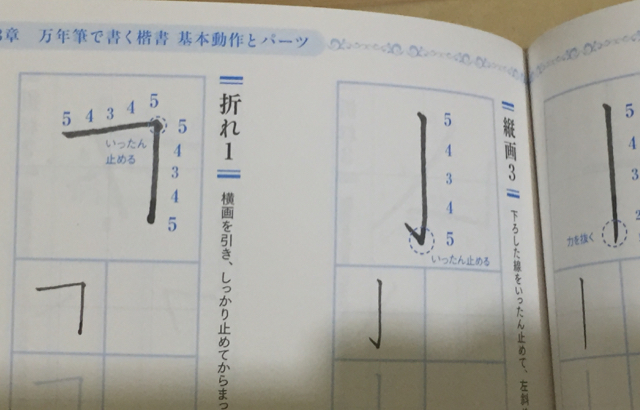 章 万年筆で書く楷書 基本動作とパーツ
縦画3
下ろした線をいったん止めて、左斜
5
4
3
4
5
いったん止める
折れ1
横画を引き、しっかり止めてからまっ
5 4 3 4 5
5
4
3
4
5
いったん
止める
5
4
3
力を抜く